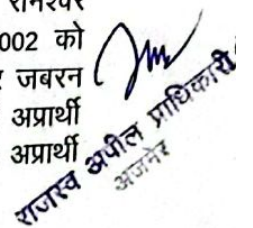 रामेश्वर
002 को
जबरन
अप्रार्थी
अप्रार्थी
राजस्व अपील प्राधिकारी
अजमेर